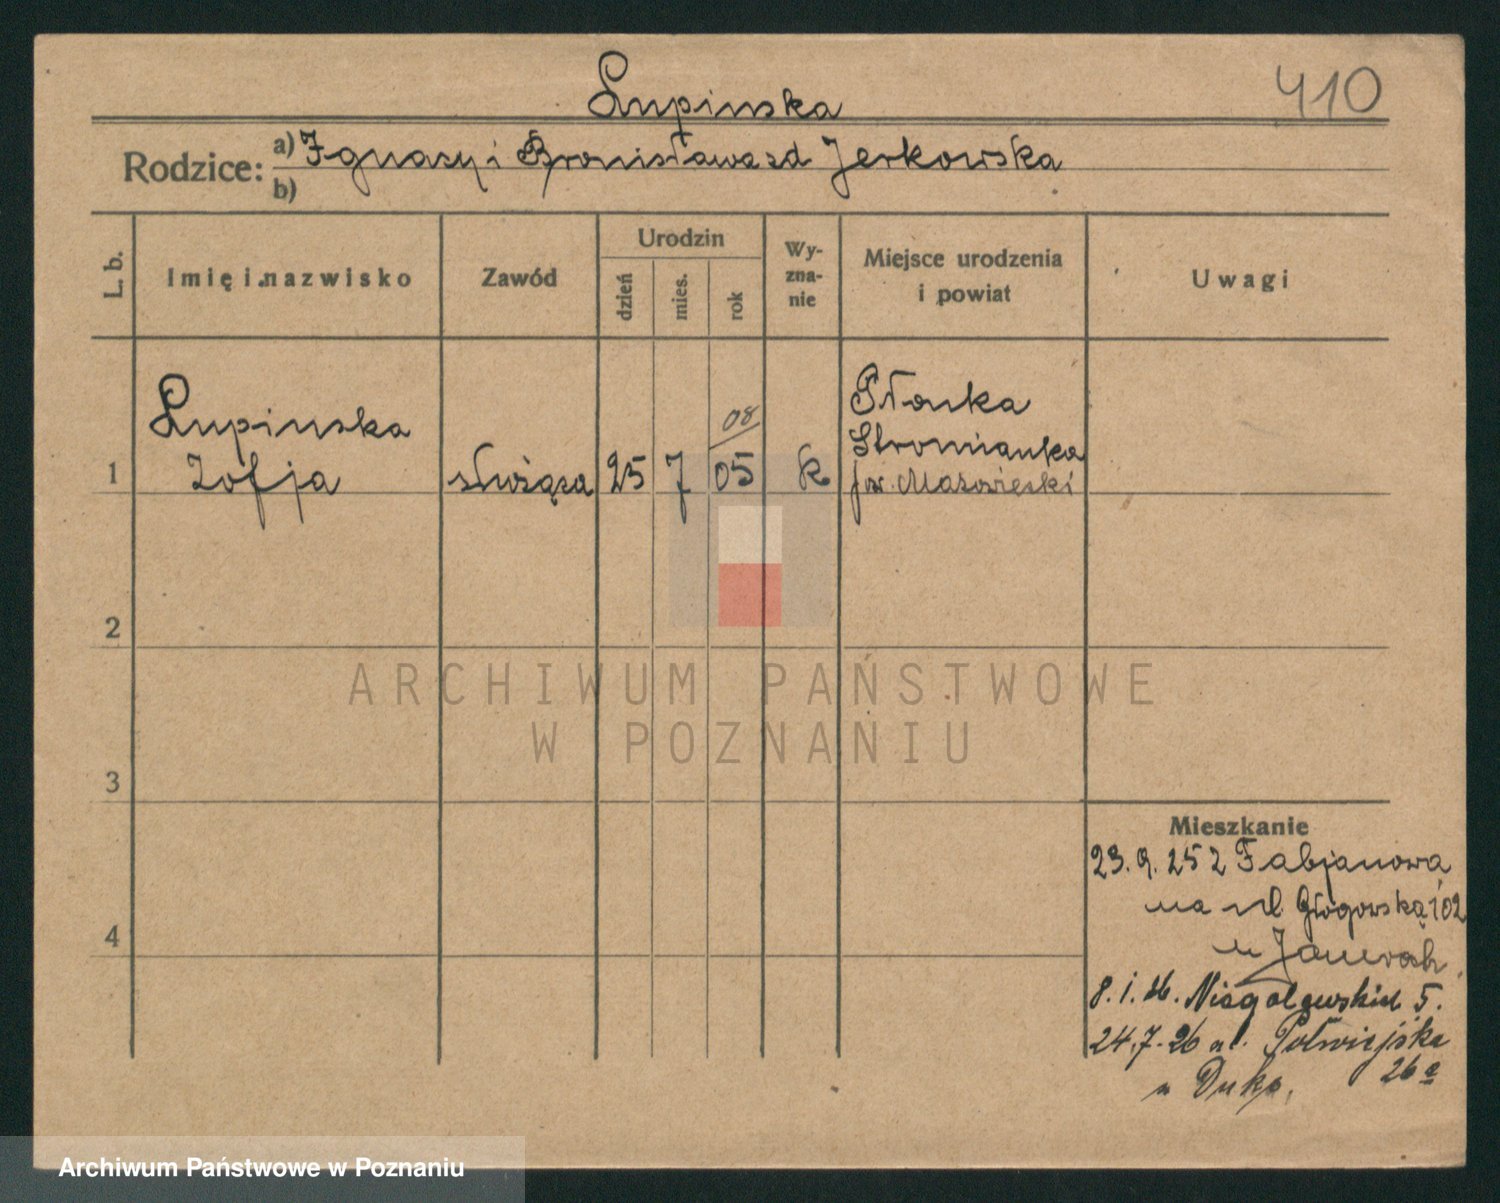 Lupinska
410
Rodzice: a) Ignacy i Bronisława zd Jerkowska
b)
L. b.
Imię i nazwisko
Zawód
Urodzin
dzień
mies.
rok
Wy-
zna-
nie
Miejsce urodzenia
i powiat
Uwagi
1
Lupinska
Zofja
służąca
25
7
08
05
k
Płonka
Stromianka
pow. Mazowiecki
2
3
4
Mieszkanie
23. 9. 25 z Fabjanowa
na ul. Głogowską 102
u
8. 1. 26. Niegolewskich 5.
24.7.26 ul. Półwiejska
26 a
u Duka.
ARCHIWUM PAŃSTWOWE
W POZNANIU
Archiwum Państwowe w Poznaniu